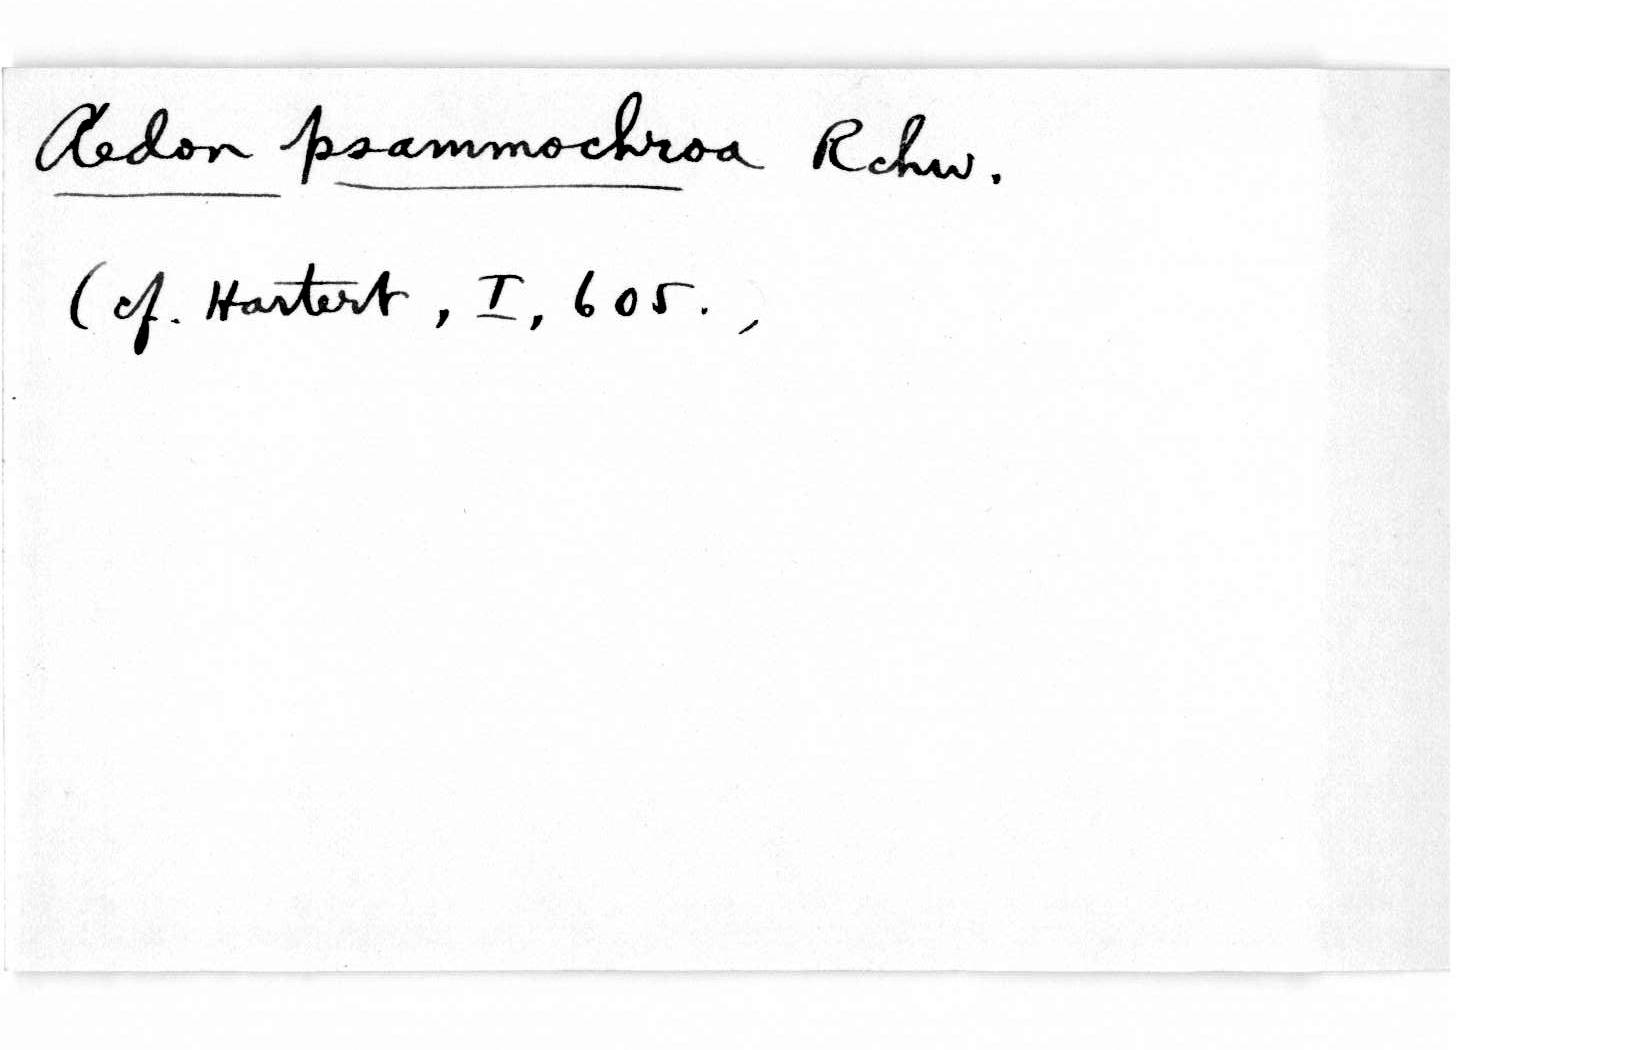 Aedon psammochroa Rchw.
(cf. Hartert, I, 605.)